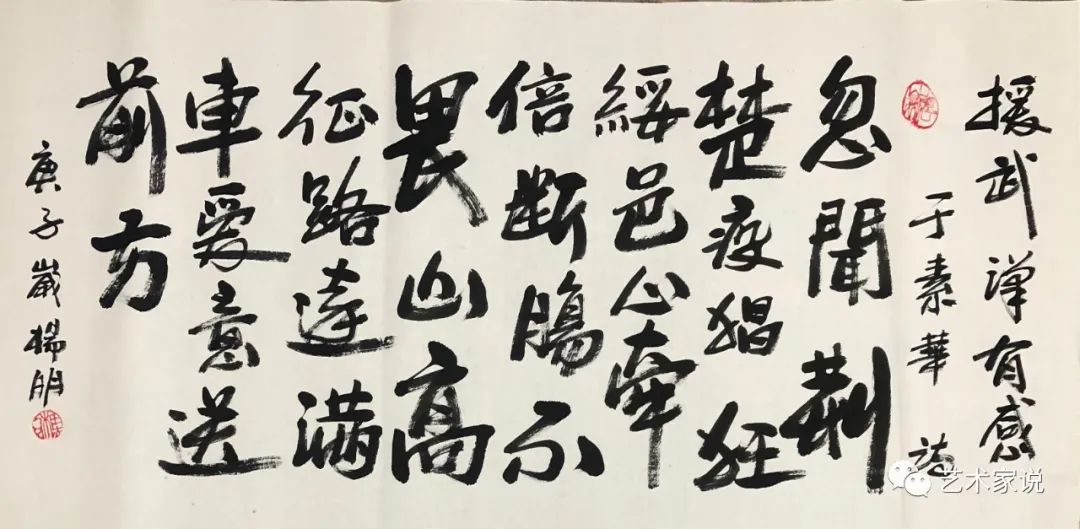 援武漢有感
于素華 詩
忽聞荊
楚疫猖狂
綏邑心牽
倍斷腸不
畏山高
征路遠滿
車愛意送
前方
庚子歲楊明
艺术家说